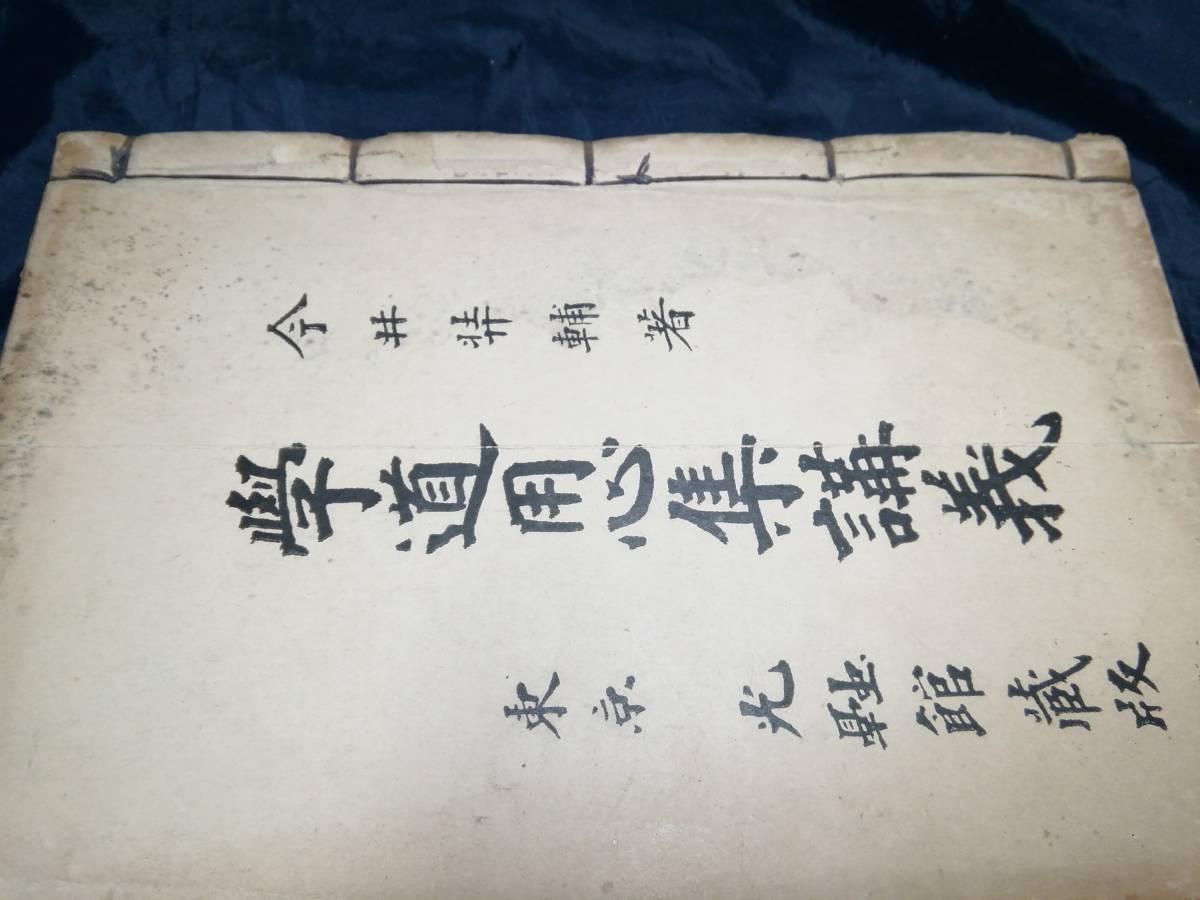 今井弉輔著
學道用心集講義
東京 光融館藏版